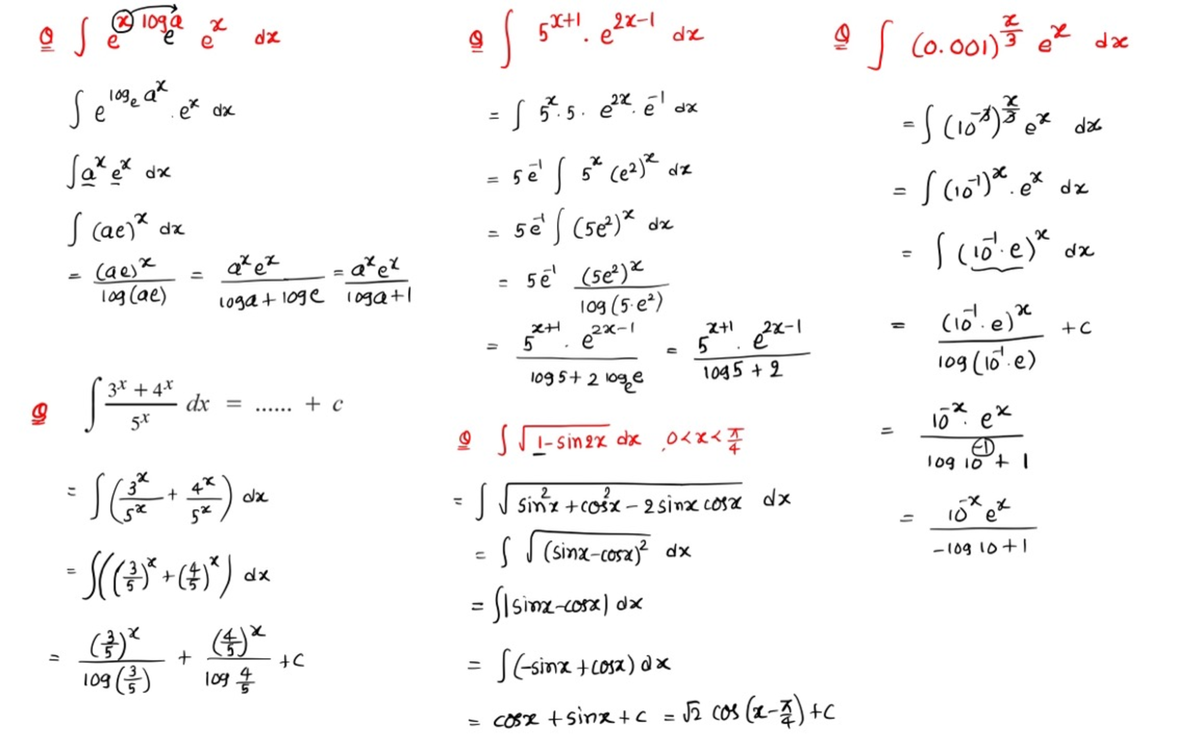 Q ∫ e^{x log_e a} e^x dx
∫ e^{log_e a^x} . e^x dx
∫ a^x e^x dx
∫ (ae)^x dx
= (ae)^x / log(ae) = a^x e^x / loga + loge = a^x e^x / loga + 1
Q ∫ 3^x + 4^x / 5^x dx = ...... + c
= ∫ (3^x / 5^x + 4^x / 5^x) dx
= ∫ ((3/5)^x + (4/5)^x) dx
= (3/5)^x / log(3/5) + (4/5)^x / log 4/5 + c
Q ∫ 5^{x+1} . e^{2x-1} dx
= ∫ 5^x . 5 . e^{2x} . e^{-1} dx
= 5e^{-1} ∫ 5^x (e^2)^x dx
= 5e^{-1} ∫ (5e^2)^x dx
= 5e^{-1} (5e^2)^x / log(5·e^2)
= 5^{x+1} . e^{2x-1} / log5 + 2 log_e e = 5^{x+1} . e^{2x-1} / log5 + 2
Q ∫ √(1-sin2x) dx , 0<x<π/4
= ∫ √(sin^2x + cos^2x - 2sinx cosx) dx
= ∫ √(sinx-cosx)^2 dx
= ∫ |sinx-cosx| dx
= ∫ (-sinx + cosx) dx
= cosx + sinx + c = √2 cos(x-π/4) + c
Q ∫ (0.001)^{x/3} e^x dx
= ∫ (10^{-3})^{x/3} e^x dx
= ∫ (10^{-1})^x . e^x dx
= ∫ (10^{-1}.e)^x dx
= (10^{-1}.e)^x / log(10^{-1}.e) + c
= 10^{-x}. e^x / log 10^{-1} + 1
= 10^{-x} e^x / -log 10 + 1